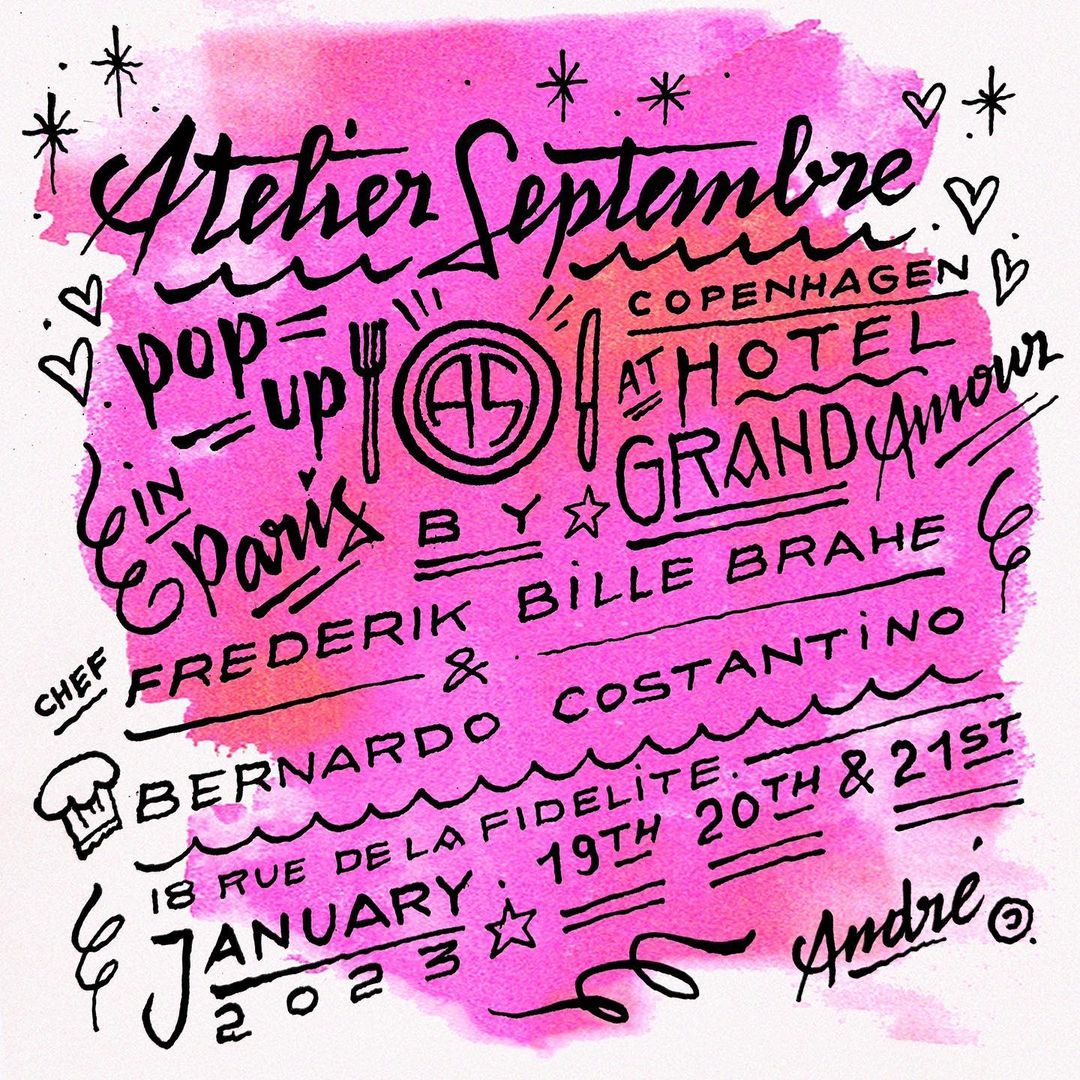 Atelier Septembre
COPENHAGEN
POP-UP
AS
AT HOTEL
GRAND Amour
IN
Paris
BY
CHEF FREDERIK BiLLE BRAHE
&
BERNARDO COSTANTiNO
18 RUE DE LA FIDELiTE.
JANUARY. 19TH 20TH & 21ST
2023
André